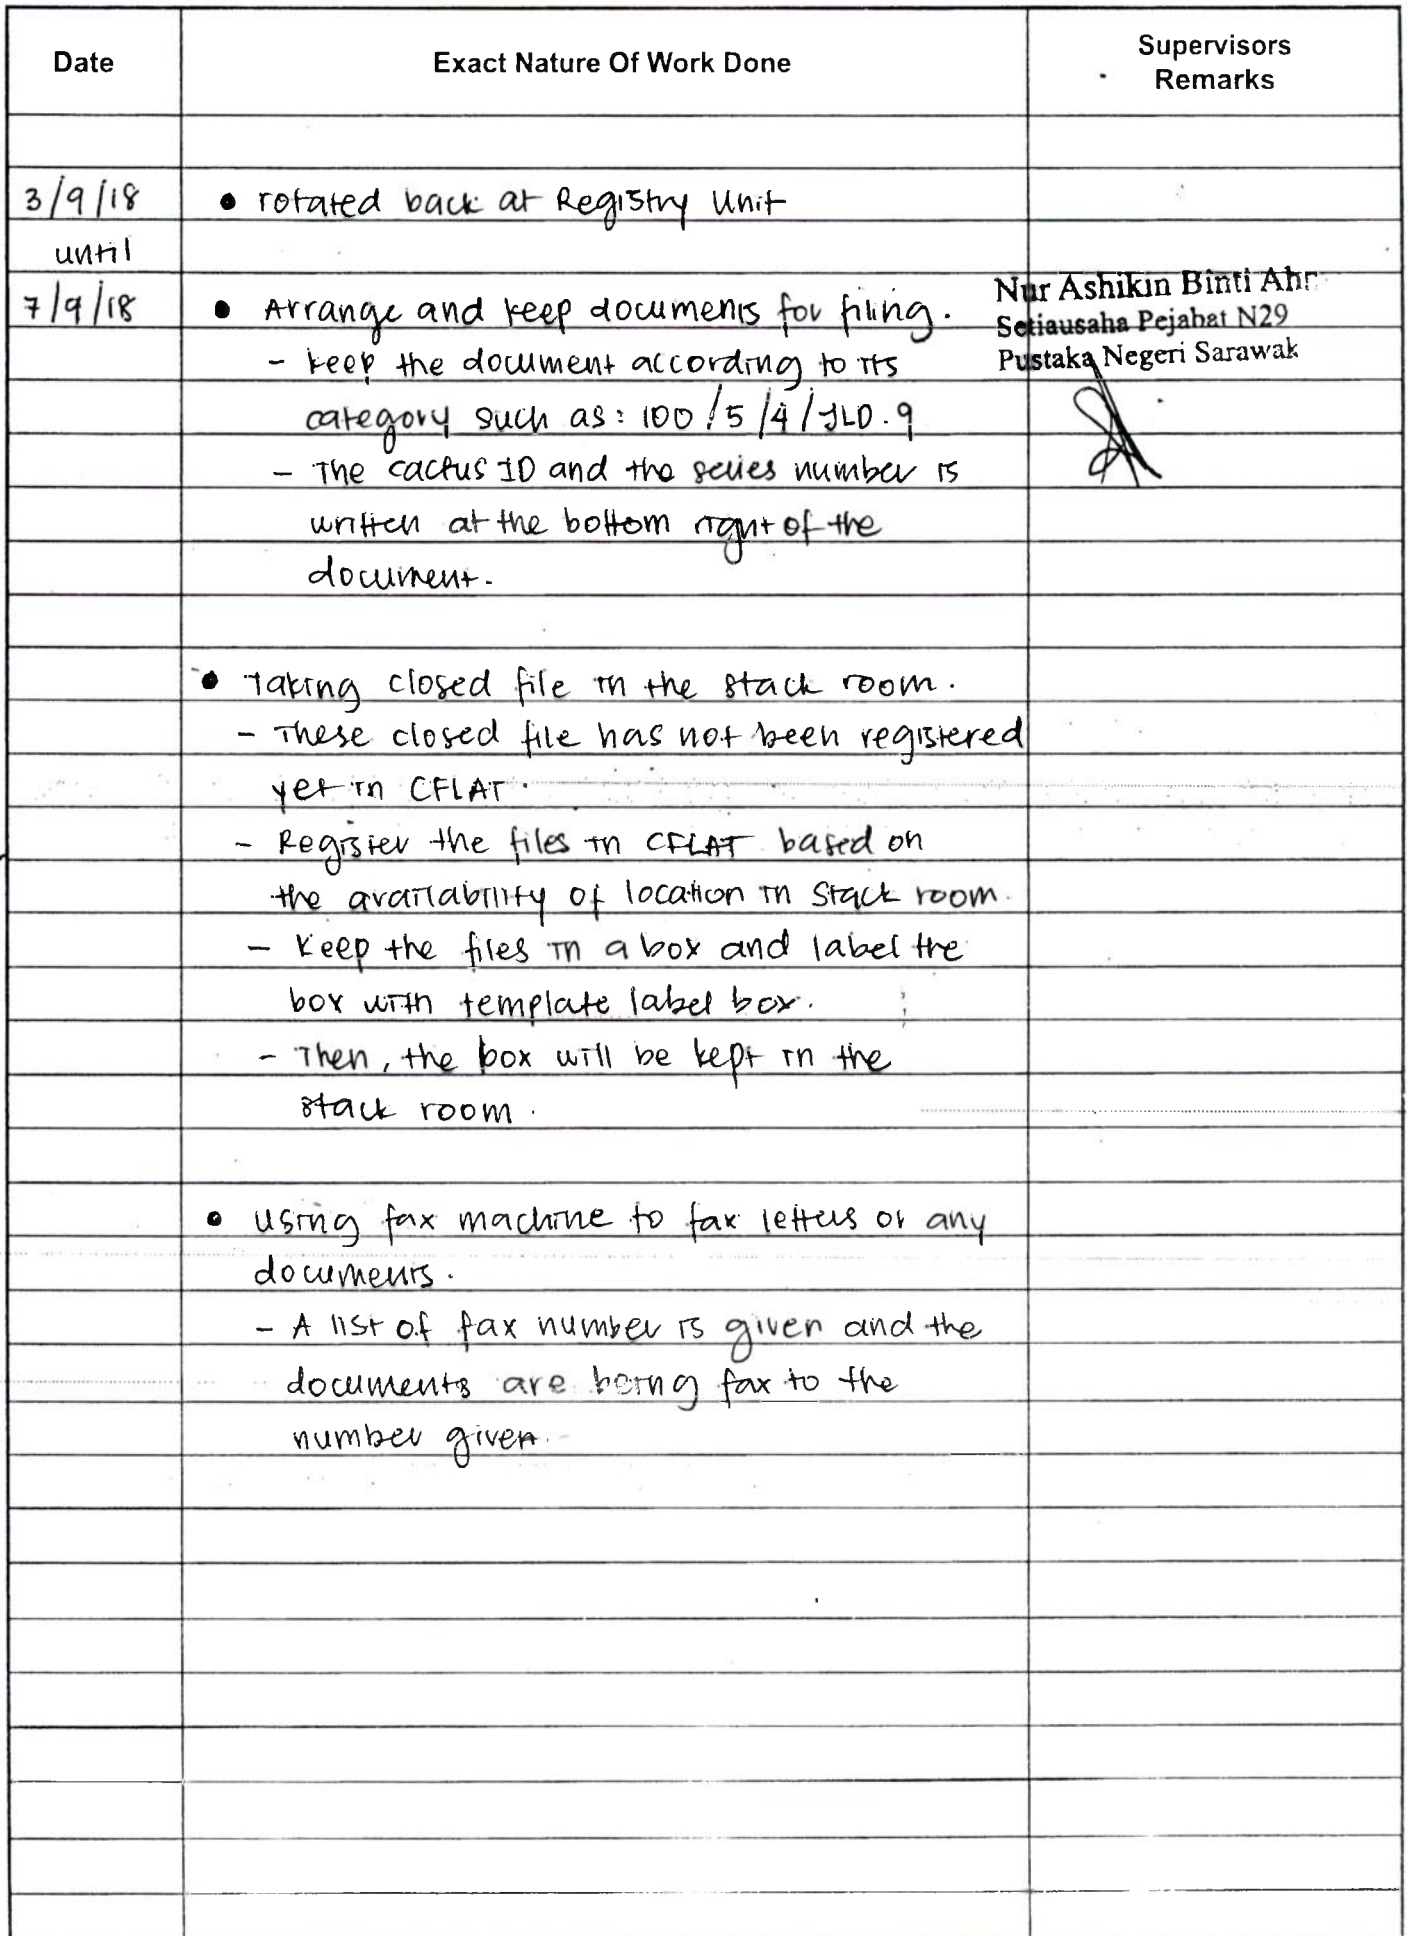 Date
Exact Nature Of Work Done
Supervisors
Remarks
3/9/18
until
7/9/18
• rotated back at Registry Unit
• Arrange and keep documents for filing.
- keep the document according to its
category such as: 100/5/4/JLD.9
- The cactus ID and the series number is
written at the bottom right of the
document.
• Taking closed file in the stack room.
- These closed file has not been registered
yet in CFLAT.
- Register the files in CFLAT based on
the availability of location in stack room.
- Keep the files in a box and label the
box with template label box.
- Then, the box will be kept in the
stack room.
• using fax machine to fax letters or any
documents.
- A list of fax number is given and the
documents are being fax to the
number given.
Nur Ashikin Binti
Setiausaha Pejabat N29
Pustaka Negeri Sarawak